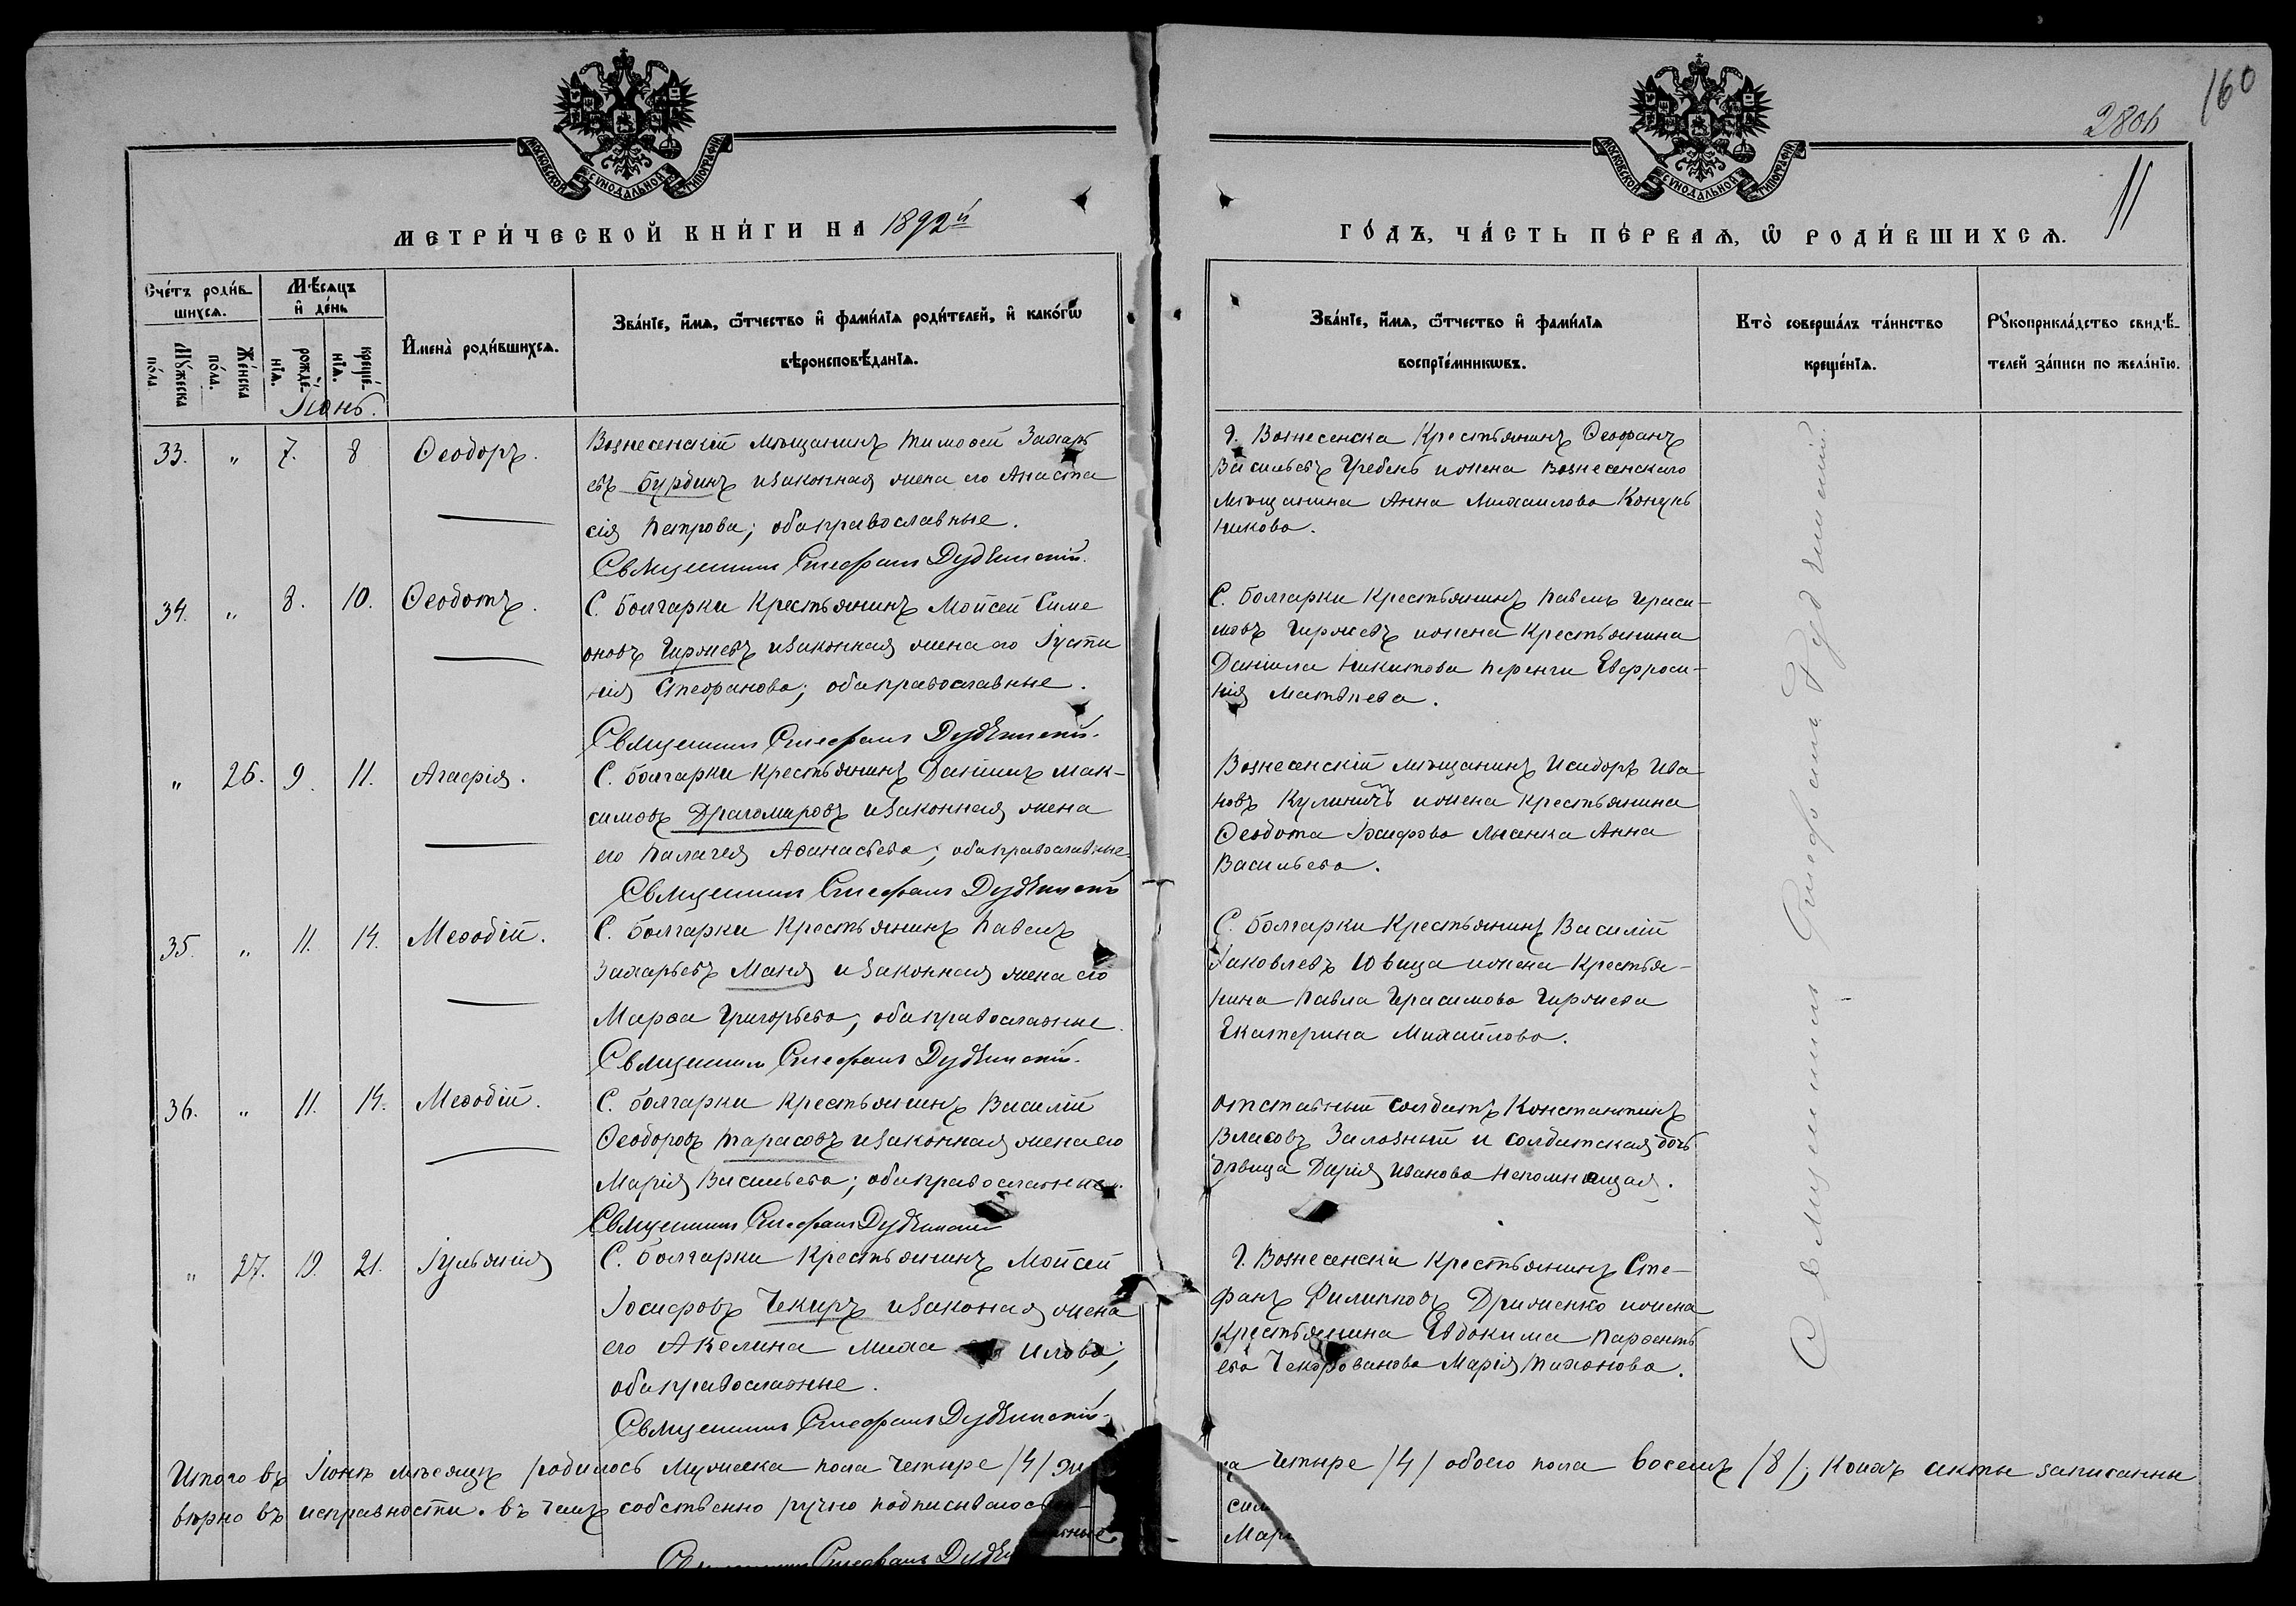 160
280б
11
МОСКОВСКОЙ СѴНОДАЛЬНОЙ ТИПОГРАФІИ
МОСКОВСКОЙ СѴНОДАЛЬНОЙ ТИПОГРАФІИ
МЕТРИ́ЧЕСКОЙ КНИ́ГИ НА 1892й
ГО́ДЪ, ЧА́СТЬ ПЕ́РВАѦ, Ѡ РОДИ́ВШИХСѦ.
Сче́тъ роди́в-
шихсѧ.
Мꙋ́жеска по́ла.
Же́нска по́ла.
Мѣ́сѧцъ
и҆ де́нь
рожде́-
нїѧ.
креще́-
нїѧ.
И҆мена̀ роди́вшихсѧ.
Зва́нїе, и҆́мѧ, ѻ҆́тчество и҆ фами́лїѧ роди́телей, и҆ како́гѡ
вѣроисповѣ́данїѧ.
Зва́нїе, и҆́мѧ, ѻ҆́тчество и҆ фами́лїѧ
воспрїе́мникѡвъ.
Кто̀ соверша́лъ та́инство
креще́нїѧ.
Рꙋкоприкла́дство свидѣ́-
телей за́писи по жела́нїю.
Іюнь.
33. " 7. 8 Ѳеодоръ.
Вознесенскій мѣщанинъ Тимоѳей Захарь
евъ Бурдинъ и законная жена его Анаста
сія Петрова; оба православные.
Священникъ Стефанъ Дудзинскій.
Г. Вознесенска Крестьянинъ Ѳеофанъ
Васильевъ Гребень и жена Вознесенскаго
мѣщанина Анна Михаилова
34. " 8. 10. Ѳеодотъ.
С. Болгарки Крестьянинъ Мойсей Симе
оновъ Гиржевъ и законная жена его Іусти
нія Стефанова; оба православные.
Священникъ Стефанъ Дудзинскій.
С. Болгарки Крестьянинъ Павелъ Гераси-
мовъ Гиржевъ и жена Крестьянина
Даніила Никитова Перенги Евфроси-
нія Матѳѣева.
" 26. 9. 11. Агафія.
С. Болгарки Крестьянинъ Даніилъ Мак-
симовъ Драгомировъ и законная жена
его Палагея Аѳанасьева; оба православные.
Священникъ Стефанъ Дудзинскій
Вознесенскій мѣщанинъ Исидоръ Ива
новъ Кулиничъ и жена крестьянина
Ѳеодота Іосифова Лисенка Анна
Васильева.
35. " 11. 14. Меѳодій.
С. Болгарки Крестьянинъ Павелъ
Захарьевъ Маня и законная жена его
Марѳа Григорьева; оба православные.
Священникъ Стефанъ Дудзинскій.
С. Болгарки Крестьянинъ Василій
Іаковлевъ Ювица и жена Крестья-
нина Павла Герасимова Гиржева
Екатерина Михайлова.
36. " 11. 14. Меѳодій.
С. Болгарки Крестьянинъ Василій
Ѳеодоровъ Тарасовъ и законная жена его
Марія Васильева; оба православные.
Священникъ Стефанъ Дудзинскій
отставный солдатъ Константинъ
Власовъ Залозный и солдатская дочь
дѣвица Дарія Иванова Непомнящая.
" 27. 19. 21. Іульянія
С. Болгарки Крестьянинъ Мойсей
Іосифовъ Чекиръ и законая жена
его Акелина Миха илова;
оба православные.
Священникъ Стефанъ Дудзинскій.
Г. Вознесенска Крестьянинъ Сте-
фанъ Филиповъ Дриженко и жена
Крестьянина Евдокима
Марія Тихонова.
Священникъ Стефанъ Дудзинскій.
Итого въ Іюнѣ мѣсяцѣ родилось Мужеска пола четыре /4/ же
ка четыре /4/ обоего пола восемь /8/; коихъ акты записанны
вѣрно въ исправности. въ чемъ собственно ручно подписываюсь
Священникъ Стефанъ Дудзи
сим
Мар